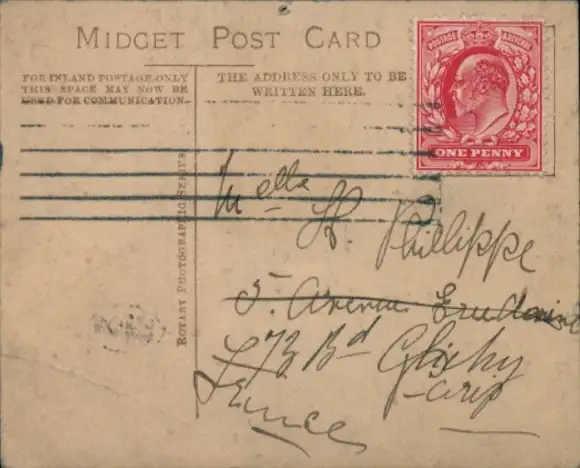 MIDGET POST CARD
FOR INLAND POSTAGE ONLY
THIS SPACE MAY NOW BE
USED FOR COMMUNICATION.
THE ADDRESS ONLY TO BE
WRITTEN HERE.
POSTAGE REVENUE
ONE PENNY
ROTARY PHOTOGRAPHIC SERIES
Mella
St. Phillippe
5. Avenue
73 Bd Glichy
Paris
France